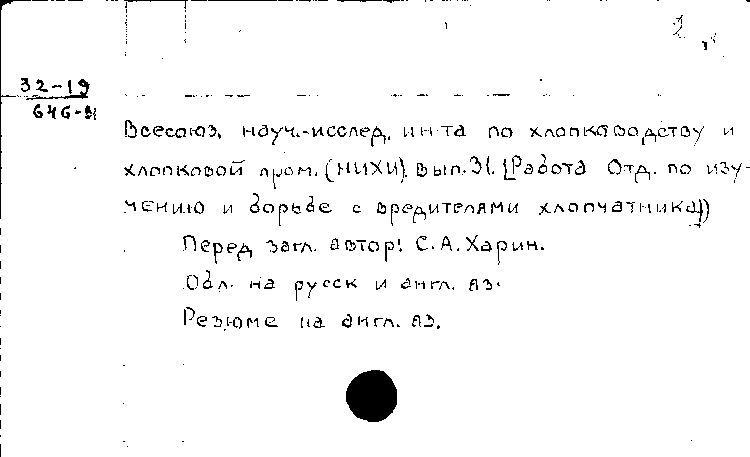 2
32-19
646-31
Всесоюз. науч.-исслед. ин-та по хлопководству и
хлопковой пром. (НИХИ). Вып. 31. [Работа Отд. по изу-
чению и борьбе с вредителями хлопчатника])
Перед загл. автор: С. А. Харин.
Обл. на русск и англ. яз.
Резюме на англ. яз.